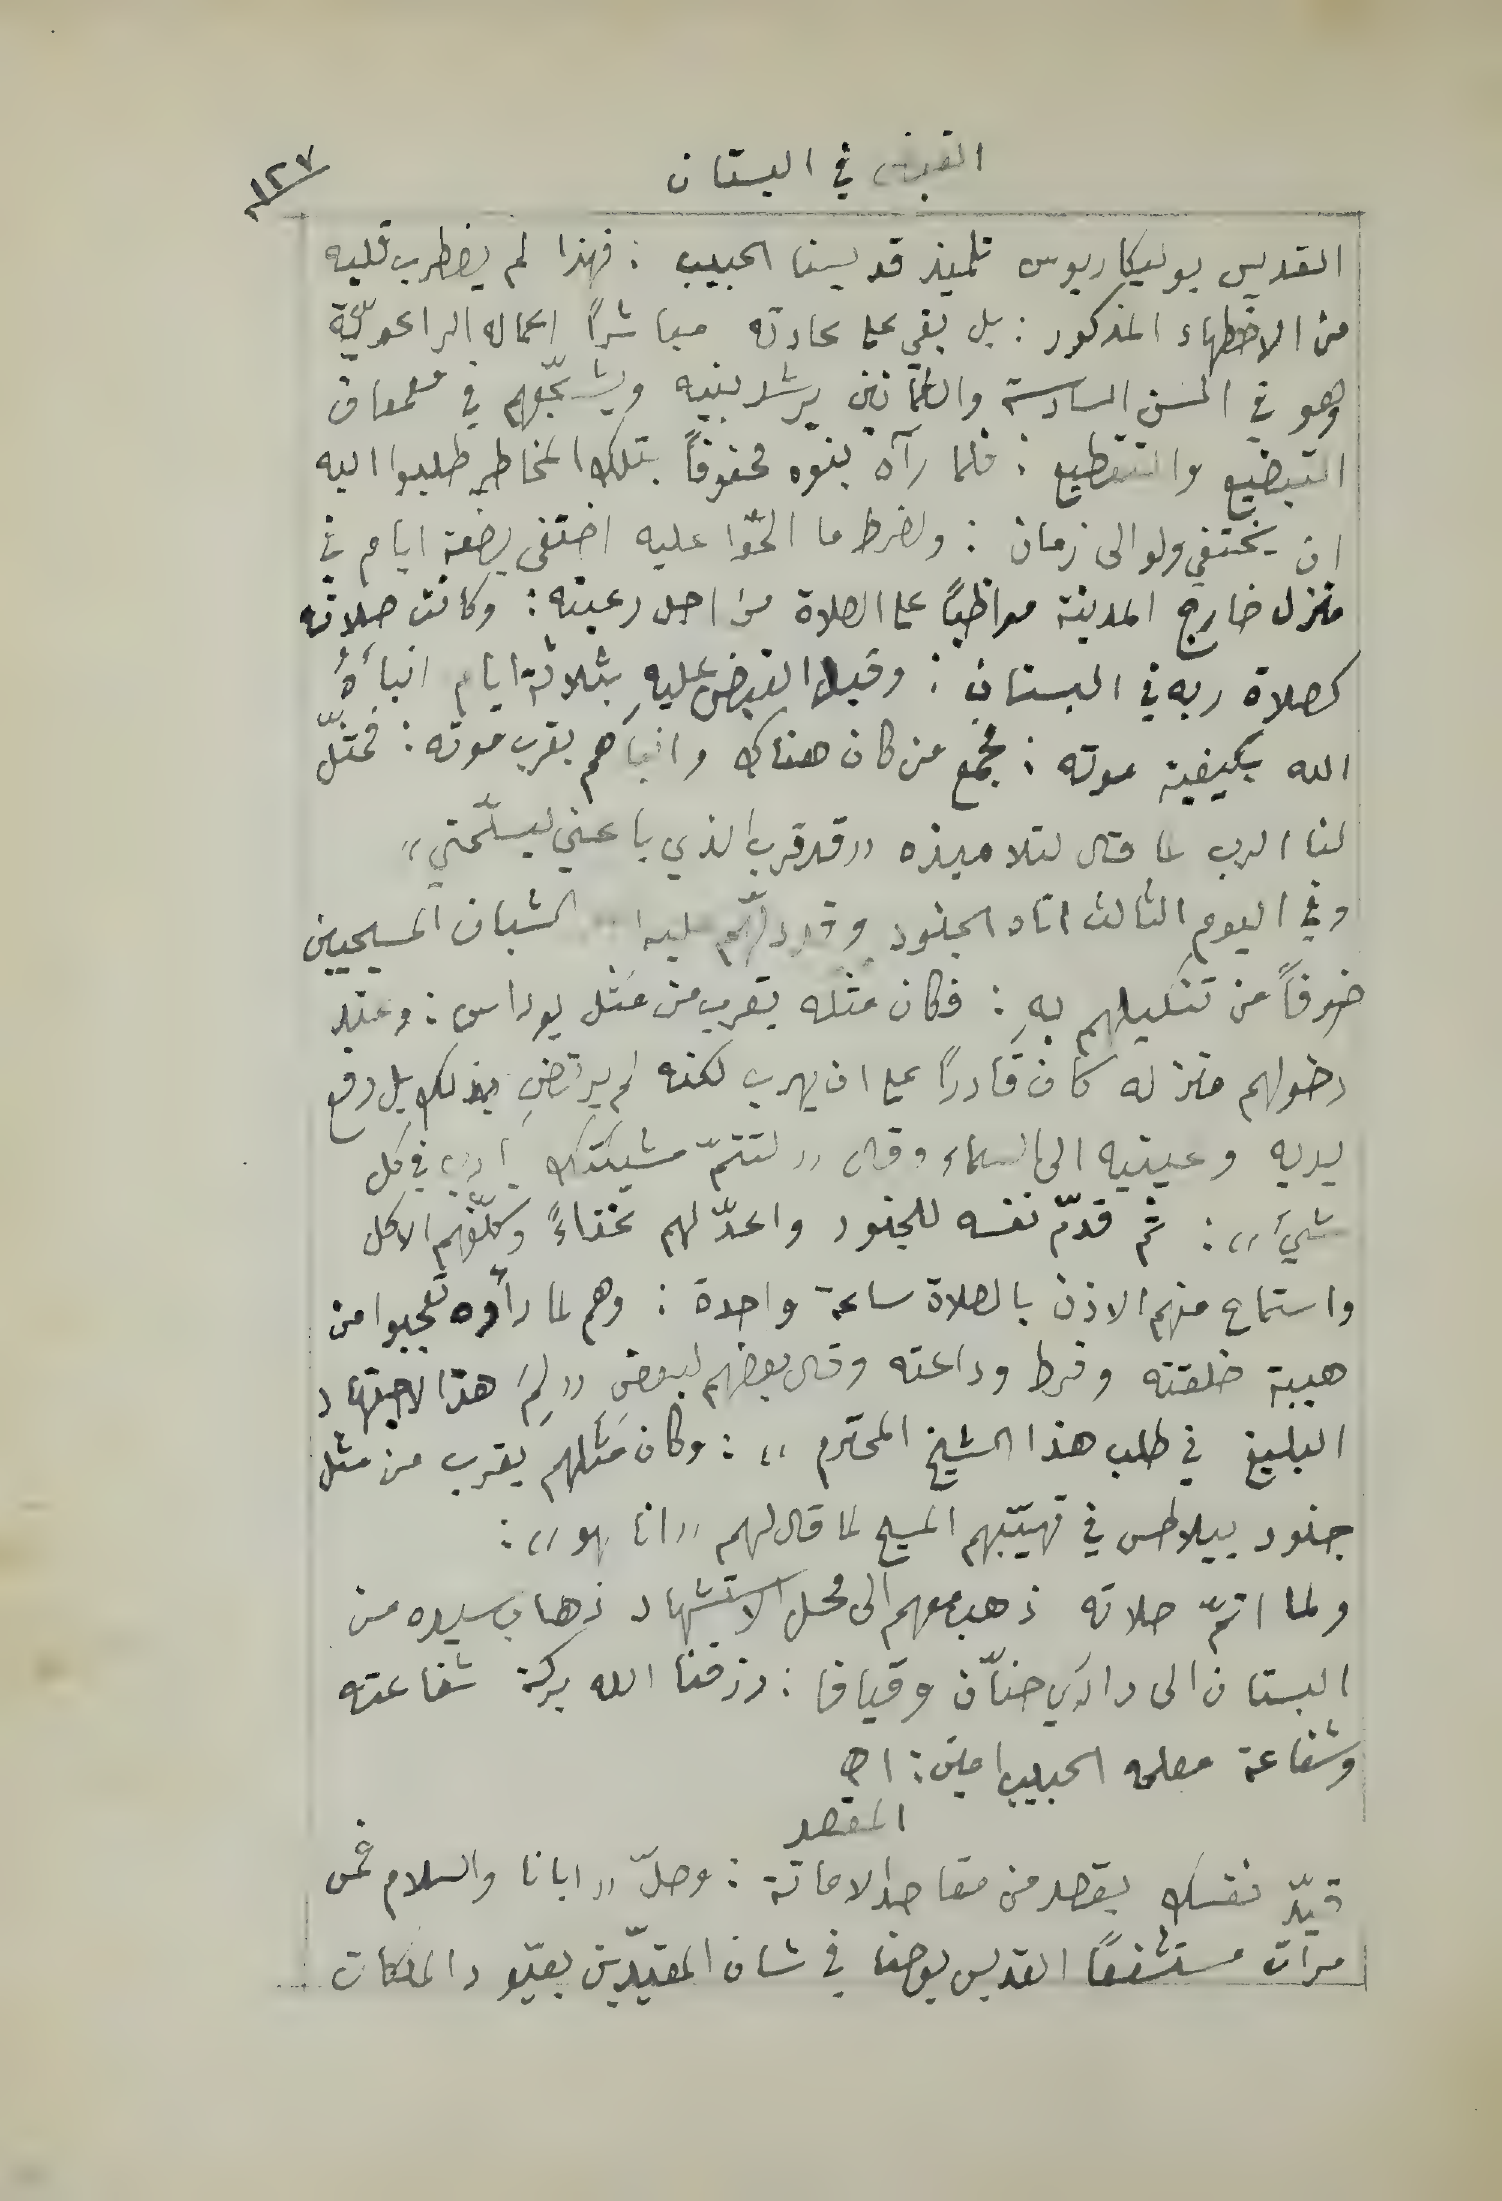 القبض في البستان
١٢٧
القديس بوليكاربوس تلميذ قديسنا الحبيب : فهذا لم يضطرب قلبه
من الاضطهاد المذكور : بل بقي على عادته مباشراً اعماله الراعويّة
وهو في السن السادسة والثمانين يرشد بنيه ويشجّعهم في معمعان
التبضيع والتقطيع : فلما رآه بنوه محفوفاً بتلك المخاطر طلبوا اليه
ان يختفي ولو الى زمان : ولفرط ما الحّوا عليه اختفى بضعة ايام في
منزل خارج المدينة مواظباً على الصلاة من اجل رعيته : وكانت صلاته
كصلاة ربه في البستان : وقبل القبض عليهِ بثلاثة ايام انبأَهُ
الله بكيفية موته : فجمع من كان هناك وانبأهم بقرب موته : فمثّل
لنا الرب لما قال لتلاميذه „قد قرب الذي باعني ليسلّمني„
وفي اليوم الثالث اتاه الجنود وقد دلّهم عليه الشبان المسيحيين
خوفاً من تنكيلهم بهِ : فكان مثله يقرب من مَثَل يوداس : وعند
دخولهم منزله كان قادراً على ان يهرب لكنه لم يرتضِ بذلك بل رفع
يديه وعينيه الى السماء وقال „لتتمّ مشيئتك يا رب في كل
شيءٍ„ : ثم قدّم نفسه للجنود واعدّ لهم غذاءً وكلّفهم الاكل
واستماح منهم الاذن بالصلاة ساعة واحدة : وهم لما رأوه تعجبوا من
هيبة خلقته وفرط وداعته وقال بعضهم لبعض „لِمَ هذا الاجتهاد
البليغ في طلب هذا الشيخ المحترم„ : وكان مَثَلهم يقرب من مثل
جنود بيلاطس في تهيّبهم المسيح لما قال لهم „انا هو„ :
ولما اتمّ صلاته ذهب معهم الى محل الاستشهاد ذهاب سيده من
البستان الى دارَي حنّان وقيافا : رزقنا الله بركة شفاعته
وشفاعة معلمه الحبيب امين : اھ
المقصد
قيّد نفسك بقصد من مقاصد الاماتة : وصلّ „ابانا والسلام خمس
مرات مستشفعاً القديس يوحنا في شان المقيّدين بقيود الملكات